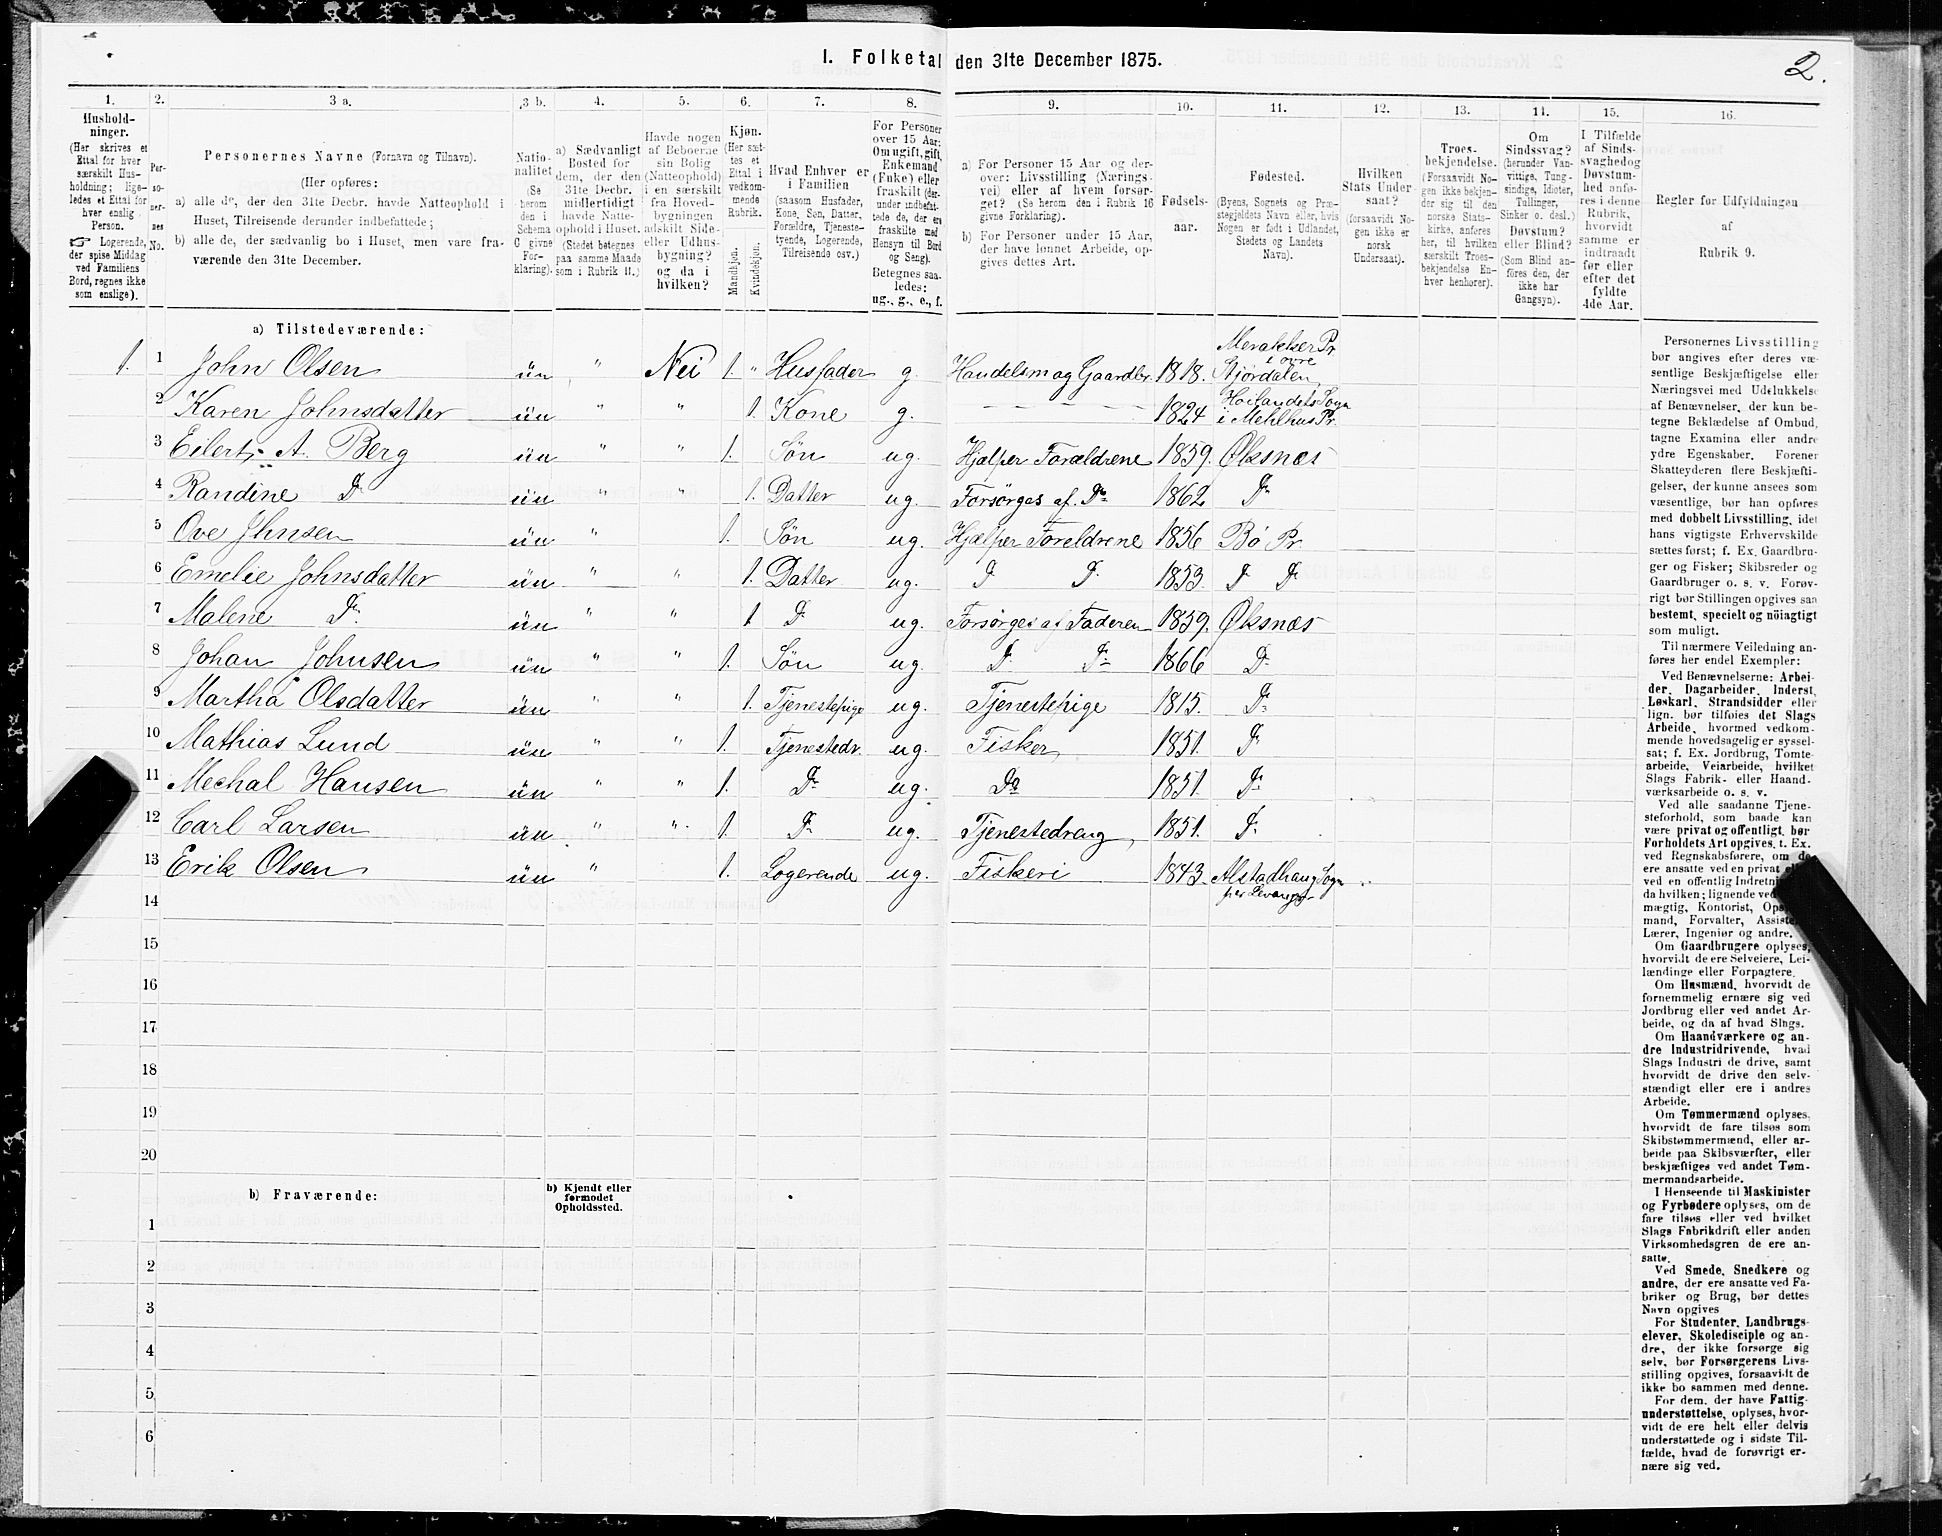 I. Folketal den 31te December 1875.
2.
1.
Hushold-
ninger.
(Her skrives et
Ettal for hver
særskilt Hus-
holdning; lige-
ledes et Ettal for
hver enslig
Person.
Logerende,
der spise Middag
ved Familiens
Bord, regnes ikke
som enslige).
2.
Per-
so-
ner-
nes
No.
3 a.
Personernes Navne (Fornavn og Tilnavn).
(Her opføres:
a) alle de, der den 31te Decbr. havde Natteophold i
Huset, Tilreisende derunder indbefattede;
b) alle de, der sædvanlig bo i Huset, men vare fra-
værende den 31te December.
3 b.
Natio-
nalitet
(Se
herom
den i
Schema
C givne
For-
klaring).
4.
a) Sædvanligt
Bosted for
dem, der den
31te Decbr.
midlertidigt
havde Natte-
ophold i Huset.
(Stedet betegnes
paa samme Maade
som i Rubrik 11.)
5.
Havde nogen
af Beboerne
sin Bolig
(Natteophold)
i en særskilt
fra Hoved-
bygningen
adskilt Side-
eller Udhus-
bygning?
og da i
hvilken?
6.
Kjøn.
(Her sæt-
tes et
Ettal i
vedkom-
mende
Rubrik.
Mandkjøn.
Kvindekjøn.
7.
Hvad Enhver er
i Familien
(saasom Husfader,
Kone, Søn, Datter,
Forældre, Tjeneste-
tyende, Logerende,
Tilreisende osv.)
8.
For Personer
over 15 Aar:
Om ugift, gift,
Enkemand
(Enke) eller
fraskilt (der-
under indbefat-
tede de, der ere
fraskilte med
Hensyn til Bord
og Seng).
Betegnes saa-
ledes:
ug., g., e., f.
9.
a) For Personer 15 Aar og der-
over: Livsstilling (Nærings-
vei) eller af hvem forsør-
get? (Se herom den i Rubrik 16
givne Forklaring).
b) For Personer under 15 Aar,
der have lønnet Arbeide, op-
gives dettes Art.
10.
Fødsels-
aar.
11.
Fødested.
(Byens, Sognets og Præ-
stegjeldets Navn eller, hvis
Nogen er født i Udlandet,
Stedets og Landets
Navn).
12.
Hvilken
Stats Under-
saat?
(forsaavidt No-
gen ikke er
norsk
Undersaat).
13.
Troes-
bekjendelse.
(Forsaavidt No-
gen ikke bekjen-
der sig til den
norske Stats-
kirke, anføres
her, til hvilken
særskilt Troes-
bekjendelse En-
hver henhører).
14.
Om
Sindssvag?
(herunder Van-
vittige, Tung-
sindige, Idioter,
Tullinger,
Sinker o. desl.)
Døvstum?
eller Blind?
(Som Blind an-
føres den, der
ikke har
Gangsyn).
15.
I Tilfælde
af Sinds-
svaghed og
Døvstum-
hed anfø-
res i denne
Rubrik,
hvorvidt
samme er
indtraadt
før eller
efter det
fyldte
4de Aar.
16.
Regler for Udfyldningen
af
Rubrik 9.
a) Tilstedeværende:
1. 1 John Olsen ün " Nei 1. " Husfader g. Handelsm og Gaardbr. 1818. Merakker Pr i øvre Stjørdalen
2 Karen Johnsdatter ün " " 1. Kone g. — — — — 1824 Høilandets Sogn i Mehlhus Pr.
3 Eilert A. Berg ün " " 1. Søn ug. Hjælper Forældrene 1859. Øksnæs
4 Randine Do ün " " 1. Datter ug. Forsørges af Do 1862 Do
5 Ove Jhnsen ün " 1. Søn ug. Hjælper Foreldrene 1856 Bø Pr.
6 Emelie Johnsdatter ün " " 1. Datter ug. D D 1853. D D
7 Malene Do ün " " 1 D ug. Forsørges af Faderen 1859. Øksnæs
8 Johan Johnsen ün " " 1. Søn ug. D D 1866 D
9 Martha Olsdatter ün " " 1. Tjenestepige ug. Tjenestepige 1815. D
10 Mathias Lund ün " " 1. Tjenestedr. ug. Fisker 1851. D
11 Mechal Hansen ün " " 1. D ug. Do 1851. D
12 Carl Larsen ün " " 1. D ug. Tjenestedreng 1851. D
13 Erik Olsen ün " 1. Logerende ug. Fiskeri 1843. Alstadhaug Sogn per Levanger
14
15
16
17
18
19
20
b) Fraværende:
b) Kjendt eller
formodet
Opholdssted.
1
2
3
4
5
6
Personernes Livsstilling
bør angives efter deres væ-
sentlige Beskjæftigelse eller
Næringsvei med Udelukkelse
af Benævnelser, der kun be-
tegne Beklædelse af Ombud,
tagne Examina eller andre
ydre Egenskaber. Forener
Skatteyderen flere Beskjæfti-
gelser, der kunne ansees som
væsentlige, bør han opføres
med dobbelt Livsstilling, idet
hans vigtigste Erhvervskilde
sættes først; f. Ex. Gaardbru-
ger og Fisker; Skibsreder og
Gaardbruger o. s. v. Forøv-
rigt bør Stillingen opgives saa
bestemt, specielt og nöiagtigt
som muligt.
Til nærmere Veiledning an-
føres her endel Exempler:
Ved Benævnelserne: Arbei-
der, Dagarbeider, Inderst,
Løskarl, Strandsidder eller
lign. bør tilføies det Slags
Arbeide, hvormed vedkom-
mende hovedsagelig er syssel-
sat; f. Ex. Jordbrug, Tomte-
arbeide, Veiarbeide, hvilket
Slags Fabrik- eller Haand-
værksarbeide o. s. v.
Ved alle saadanne Tjene-
steforhold, som baade kan
være privat og offentligt, bør
Forholdets Art opgives, t. Ex.
ved Regnskabsførere, om de
ere ansatte ved en privat
ved en offentlig Indretni
da hvilken; lignende ved
mægtig, Kontorist, Op
mand, Forvalter, Assiste
Lærer, Ingeniør og andre.
Om Gaardbrugere oplyses,
hvorvidt de ere Selveiere, Lei-
lændinge eller Forpagtere.
Om Husmænd, hvorvidt de
fornemmelig ernære sig ved
Jordbrug eller ved andet Ar-
beide, og da af hvad Slags.
Om Haandværkere og an-
dre Industridrivende, hvad
Slags Industri de drive, samt
hvorvidt de drive den selv-
stændigt eller ere i andres
Arbeide.
Om Tømmermænd oplyses,
hvorvidt de fare tilsøs som
Skibstømmermænd, eller ar-
beide paa Skibsværfter, eller
beskjæftiges ved andet Tøm-
mermandsarbeide.
I Henseende til Maskinister
og Fyrbødere oplyses, om de
fare tilsøs eller ved hvilket
Slags Fabrikdrift eller anden
Virksomhedsgren de ere an-
satte.
Ved Smede, Snedkere og
andre, der ere ansatte ved Fa-
briker og Brug, bør dettes
Navn opgives
For Studenter, Landbrugs-
elever, Skoledisciple og an-
dre, der ikke forsørge sig
selv, bør Forsørgerens Livs-
stilling opgives, forsaavidt de
ikke bo sammen med denne.
For dem, der have Fattig-
understøttelse, oplyses, hvor-
vidt de ere helt eller delvis
understøttede og i sidste Til-
fælde, hvad de forøvrigt er-
nære sig ved.